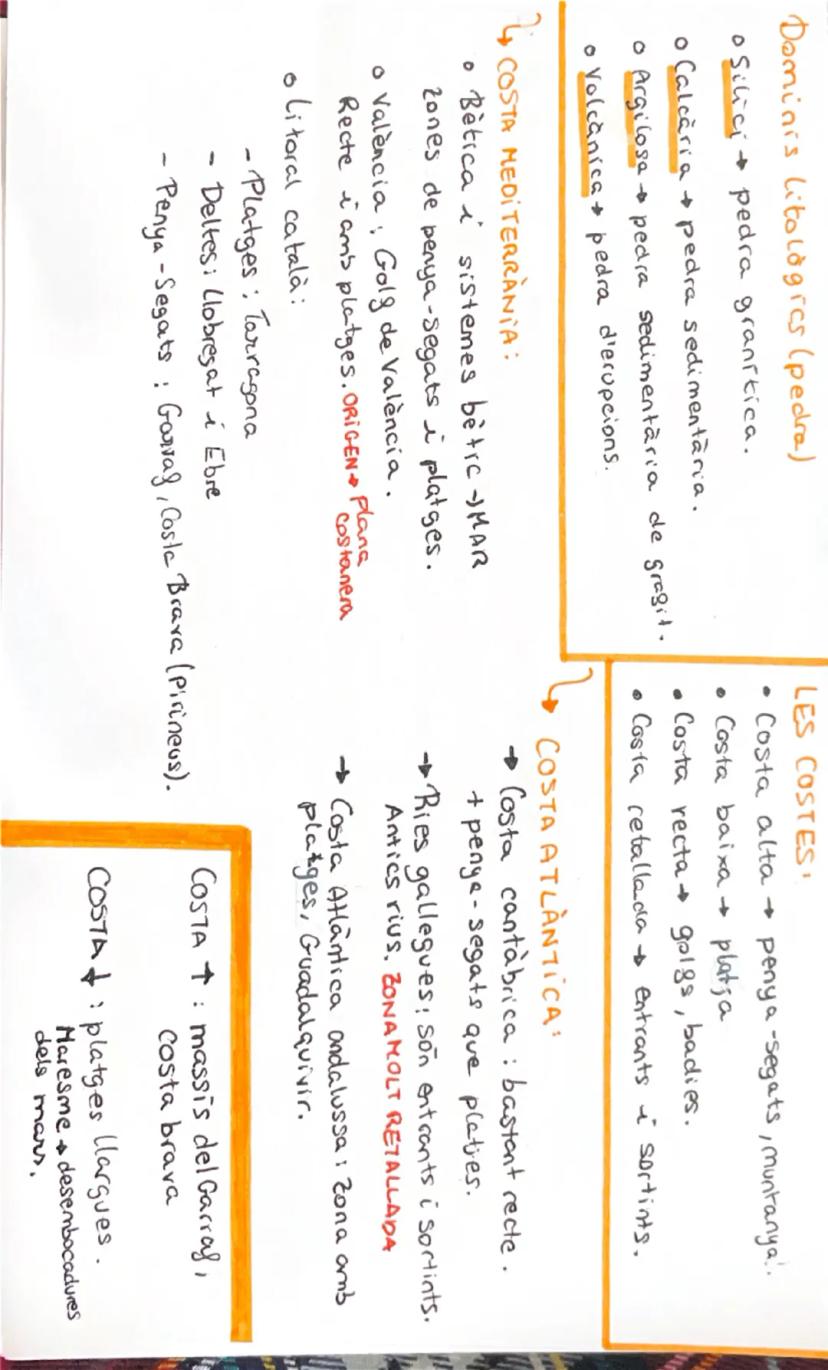 Dominis litològics (pedra)
o Silici → pedra granítica.
o Calcària → pedra sedimentària.
o Argilosa → pedra sedimentària de gragit.
o Volcànica → pedra d'erupcions.
LES COSTES:
• Costa alta → penya-segats, muntanya.
• Costa baixa → platja
• Costa recta → golgs, badies.
• Costa retallada → entrants i sortints.
↳ COSTA MEDITERRÀNIA:
o Bètica i sistemes bètic → MAR
zones de penya-segats i platges.
o València: Golg de València.
Recte i amb platges. ORIGEN → Plana
costanera
o Litoral català:
- Platges: Tarragona
- Deltes: Llobregat i Ebre
- Penya-Segats: Garraf, Costa Brava (Pirineus).
↳ COSTA ATLÀNTICA:
→ Costa cantàbrica: bastant recte.
+ penya-segats que platjes.
→ Ries gallegues: són entrants i sortints.
Antics rius. ZONA MOLT RETALLADA
→ Costa Atlàntica andalussa: zona amb
platges, Guadalquivir.
COSTA ↑: massís del Garraf,
costa brava
COSTA ↓: platges llargues.
Maresme → desembocadures
dels mars.